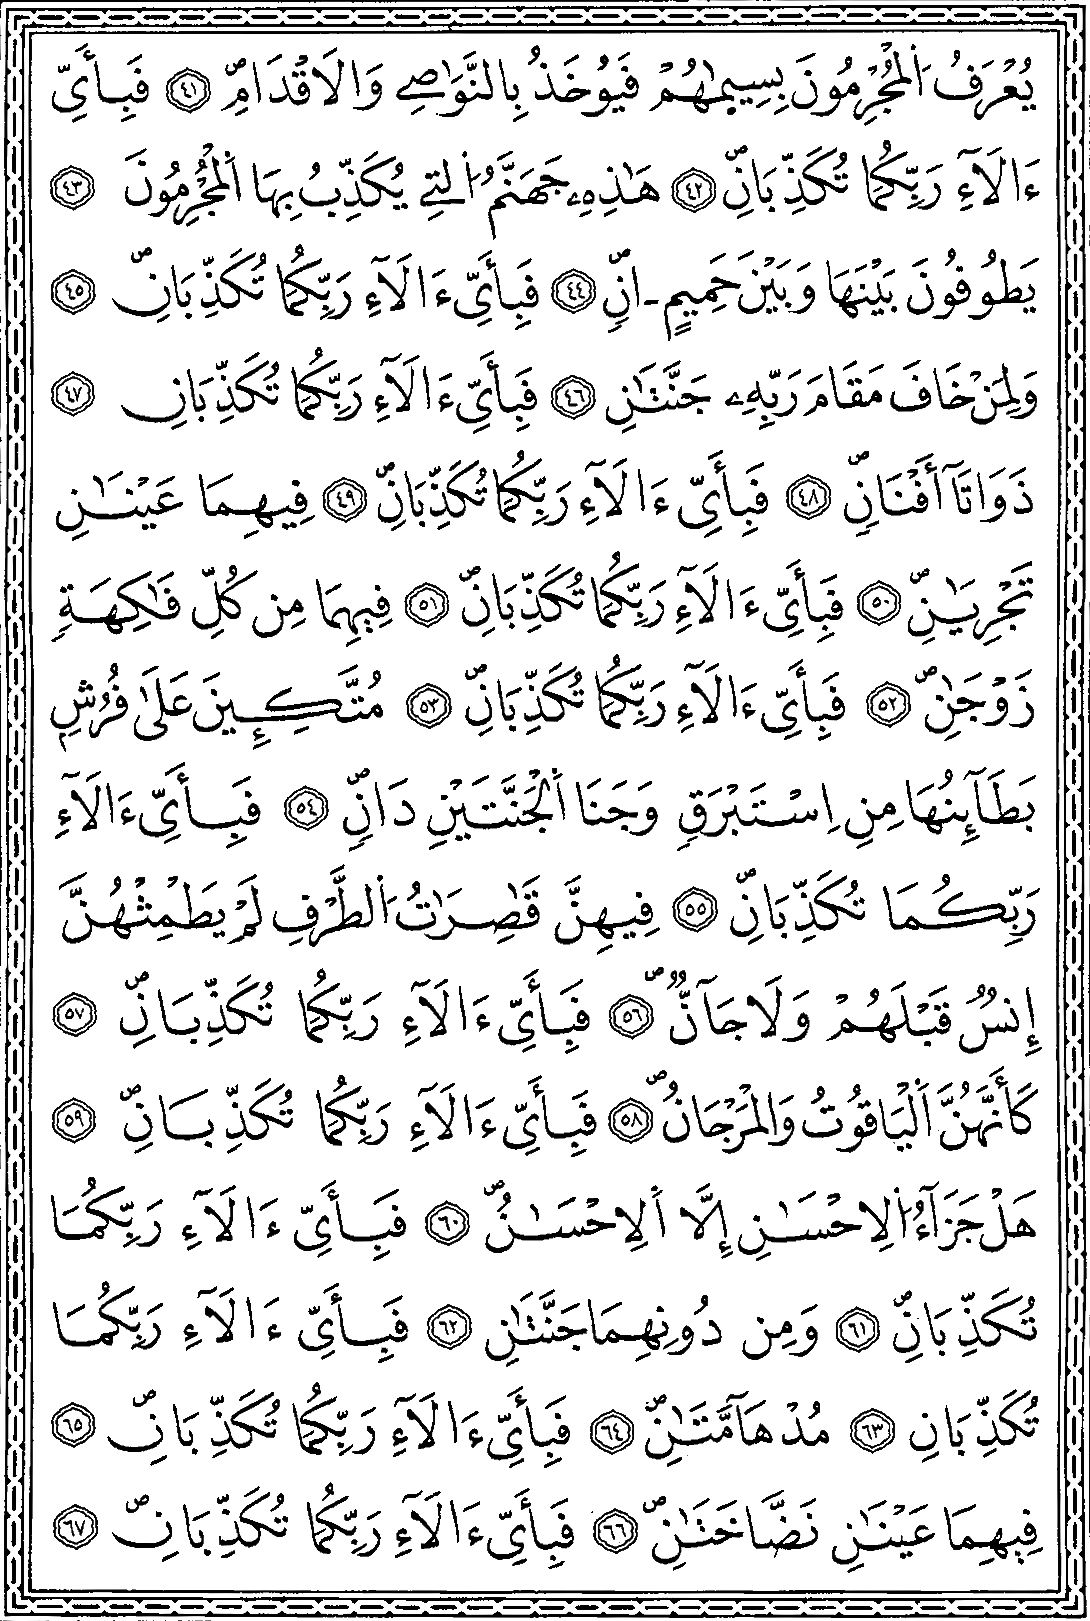 يُعْرَفُ اَ۬لْمُجْرِمُونَ بِسِيمَٰهُمْ فَيُوخَذُ بِالنَّوَٰصِے وَالَاقْدَامِۖ ٤١ فَبِأَيِّ
ءَالَآءِ رَبِّكُمَا تُكَذِّبَانِۖ ٤٢ هَٰذِهِۦ جَهَنَّمُ اُ۬لتِے يُكَذِّبُ بِهَا اَ۬لْمُجْرِمُونَ ٤٣
يَطُوفُونَ بَيْنَهَا وَبَيْنَ حَمِيمٍ ـ انٖۖ ٤٤ فَبِأَيِّ ءَالَآءِ رَبِّكُمَا تُكَذِّبَانِۖ ٤٥
وَلِمَنْ خَافَ مَقَامَ رَبِّهِۦ جَنَّتَٰنِ ٤٦ فَبِأَيِّ ءَالَآءِ رَبِّكُمَا تُكَذِّبَانِ ٤٧
ذَوَاتَآ أَفْنَانٖۖ ٤٨ فَبِأَيِّ ءَالَآءِ رَبِّكُمَا تُكَذِّبَانِۖ ٤٩ فِيهِمَا عَيْنَٰنِ
تَجْرِيَٰنِۖ ٥٠ فَبِأَيِّ ءَالَآءِ رَبِّكُمَا تُكَذِّبَانِۖ ٥١ فِيهِمَا مِن كُلِّ فَٰكِهَةٖ
زَوْجَٰنِۖ ٥٢ فَبِأَيِّ ءَالَآءِ رَبِّكُمَا تُكَذِّبَانِۖ ٥٣ مُتَّكِـِٕينَ عَلَىٰ فُرُشِۢ
بَطَآئِنُهَا مِنِ اِسْتَبْرَقٖ وَجَنَا اَ۬لْجَنَّتَيْنِ دَانٖۖ ٥٤ فَبِأَيِّ ءَالَآءِ
رَبِّكُمَا تُكَذِّبَانِۖ ٥٥ فِيهِنَّ قَٰصِرَٰتُ اُ۬لطَّرْفِ لَمْ يَطْمِثْهُنَّ
إِنسٞ قَبْلَهُمْ وَلَا جَآنّٞۖ ٥٦ فَبِأَيِّ ءَالَآءِ رَبِّكُمَا تُكَذِّبَانِۖ ٥٧
كَأَنَّهُنَّ اَ۬لْيَاقُوتُ وَالْمَرْجَانُۖ ٥٨ فَبِأَيِّ ءَالَآءِ رَبِّكُمَا تُكَذِّبَانِۖ ٥٩
هَلْ جَزَآءُ اُ۬لِاحْسَٰنِ إِلَّا اَ۬لِاحْسَٰنُۖ ٦٠ فَبِأَيِّ ءَالَآءِ رَبِّكُمَا
تُكَذِّبَانِۖ ٦١ وَمِن دُونِهِمَا جَنَّتَٰنِ ٦٢ فَبِأَيِّ ءَالَآءِ رَبِّكُمَا
تُكَذِّبَانِ ٦٣ مُدْهَآمَّتَٰنِۖ ٦٤ فَبِأَيِّ ءَالَآءِ رَبِّكُمَا تُكَذِّبَانِۖ ٦٥
فِيهِمَا عَيْنَٰنِ نَضَّاخَتَٰنِۖ ٦٦ فَبِأَيِّ ءَالَآءِ رَبِّكُمَا تُكَذِّبَانِۖ ٦٧